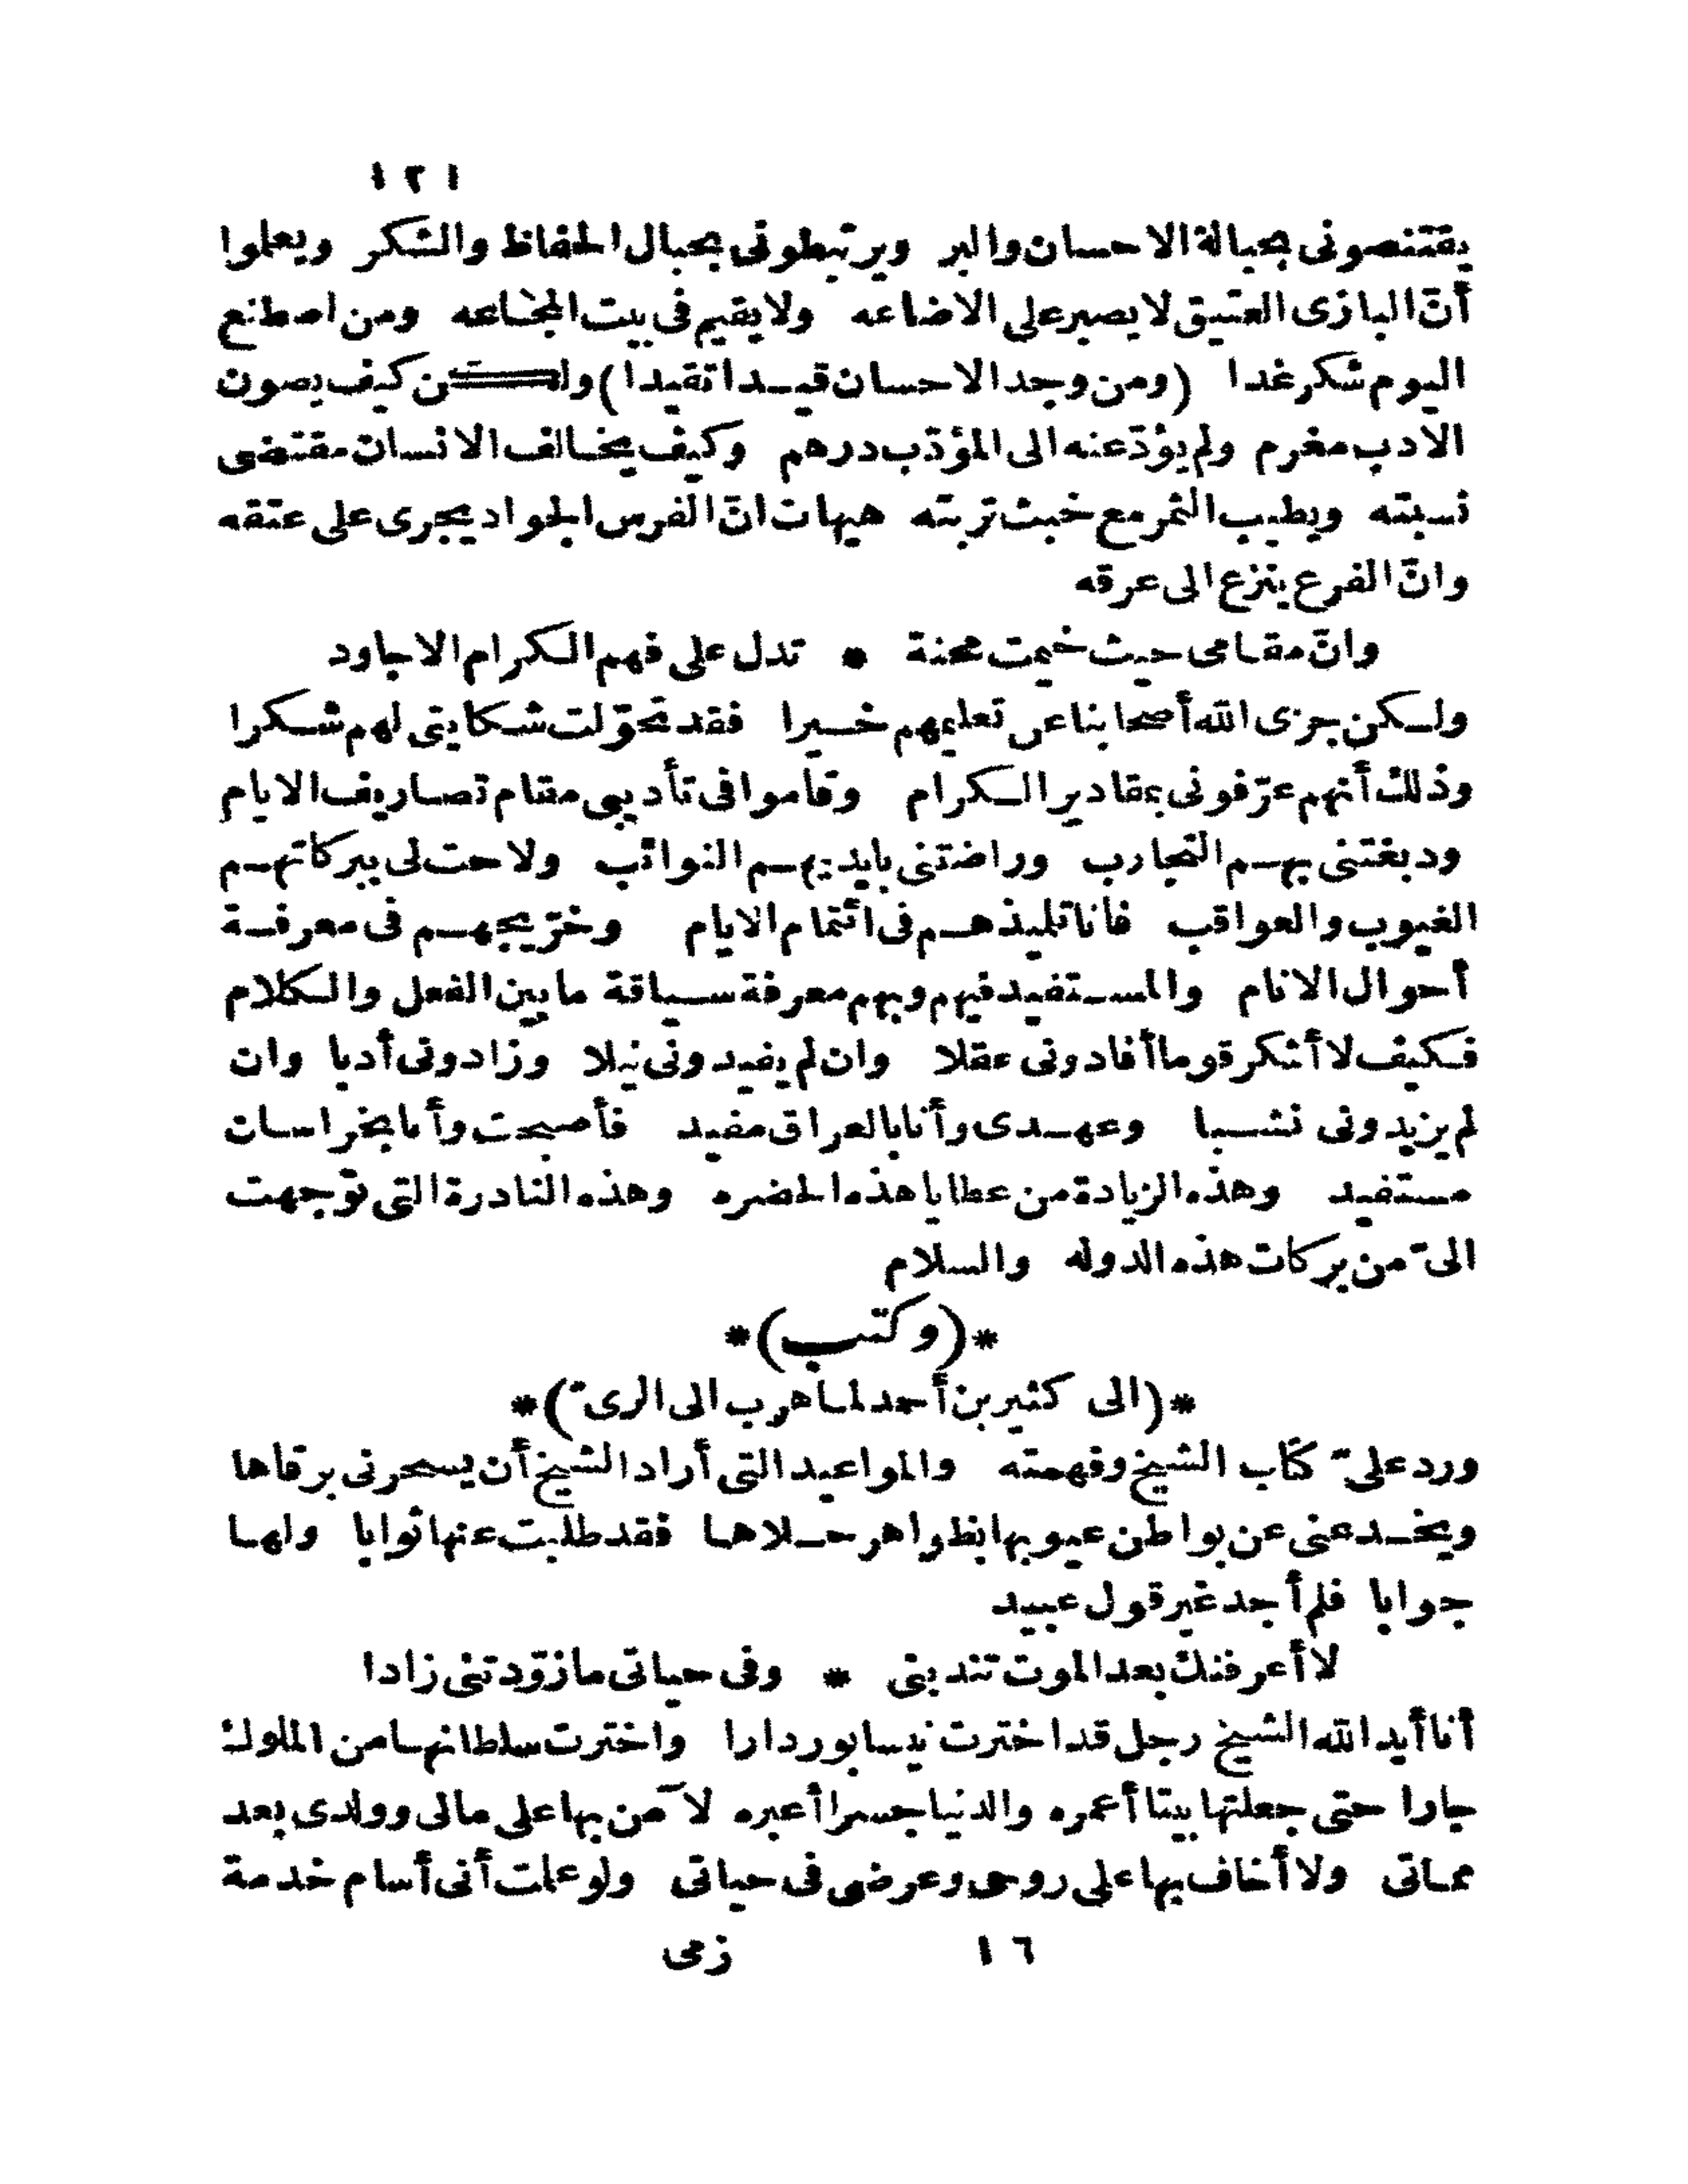 ١٢١
يقتنصونى بحبالة الاحسان والبر ويرتبطونى بحبال الحفاظ والشكر ويعلوا
أنّ البازى العتيق لا يصبر على الاضاعه ولا يقيم فى بيت المجاعه ومن اصطنع
اليوم شكر غدا (ومن وجد الاحسان قيدا تقيدا) ولكن كيف يصون
الادب مغرم ولم يؤدّ عنه الى المؤدّب درهم وكيف يخالف الانسان مقتضى
نسبته ويطيب الثمر مع خبث تربته هيهات انّ الفرس الجواد يجرى على عتقه
وانّ الفرع ينزع الى عرقه
وانّ مقامى حيث خيمت محنة * تدل على فهم الكرام الاجاود
ولكن جزى الله أصحابنا عن تعليمهم خيرا فقد تحوّلت شكايتى لهم شكرا
وذلك أنهم عرّفونى بمقادير الكرام وقاموا فى تأديبى مقام تصاريف الايام
ودبغتنى بهم التجارب وراضتنى بايديهم النوائب ولاحت لى ببركاتهم
الغيوب والعواقب فانا تليذهم فى ائتمام الايام وخرّيجهم فى معرفة
أحوال الانام والمستفيد فيهم وبهم معرفة سياقة ما بين الفعل والكلام
فكيف لا أشكر قوما أفادونى عقلا وان لم يفيدونى نيلا وزادونى أدبا وان
لم يزيدونى نشبا وعهدى وأنا بالعراق مفيد فأصبحت وأنا بخراسان
مستفيد وهذه الزيادة من عطايا هذه الحضره وهذه النادرة التى توّجهت
الىّ من بركات هذه الدوله والسلام
*(وكتب)*
*(الى كثير بن أحمد لما هرب الى الرىّ)*
ورد علىّ كتاب الشيخ وفهمته والمواعيد التى أراد الشيخ أن يسحرنى برقاها
ويخدعنى عن بواطن عيوبها بظواهر حلاها فقد طلبت عنها ثوابا ولها
جوابا فلم أجد غير قول عبيد
لا أعرفنك بعد الموت تندبنى * وفى حياتى ما زوّدتنى زادا
أنا أيد الله الشيخ رجل قد اخترت نيسابور دارا واخترت سلطانها من الملوك
جارا حتى جعلتها بيتا أعمره والدنيا جسرا أعبره لا آمن بها على مالى وولدى بعد
مماتى ولا أخاف بها على روحى وعرضى فى حياتى ولو علمت أنى أسام خدمة
١٦ زمى